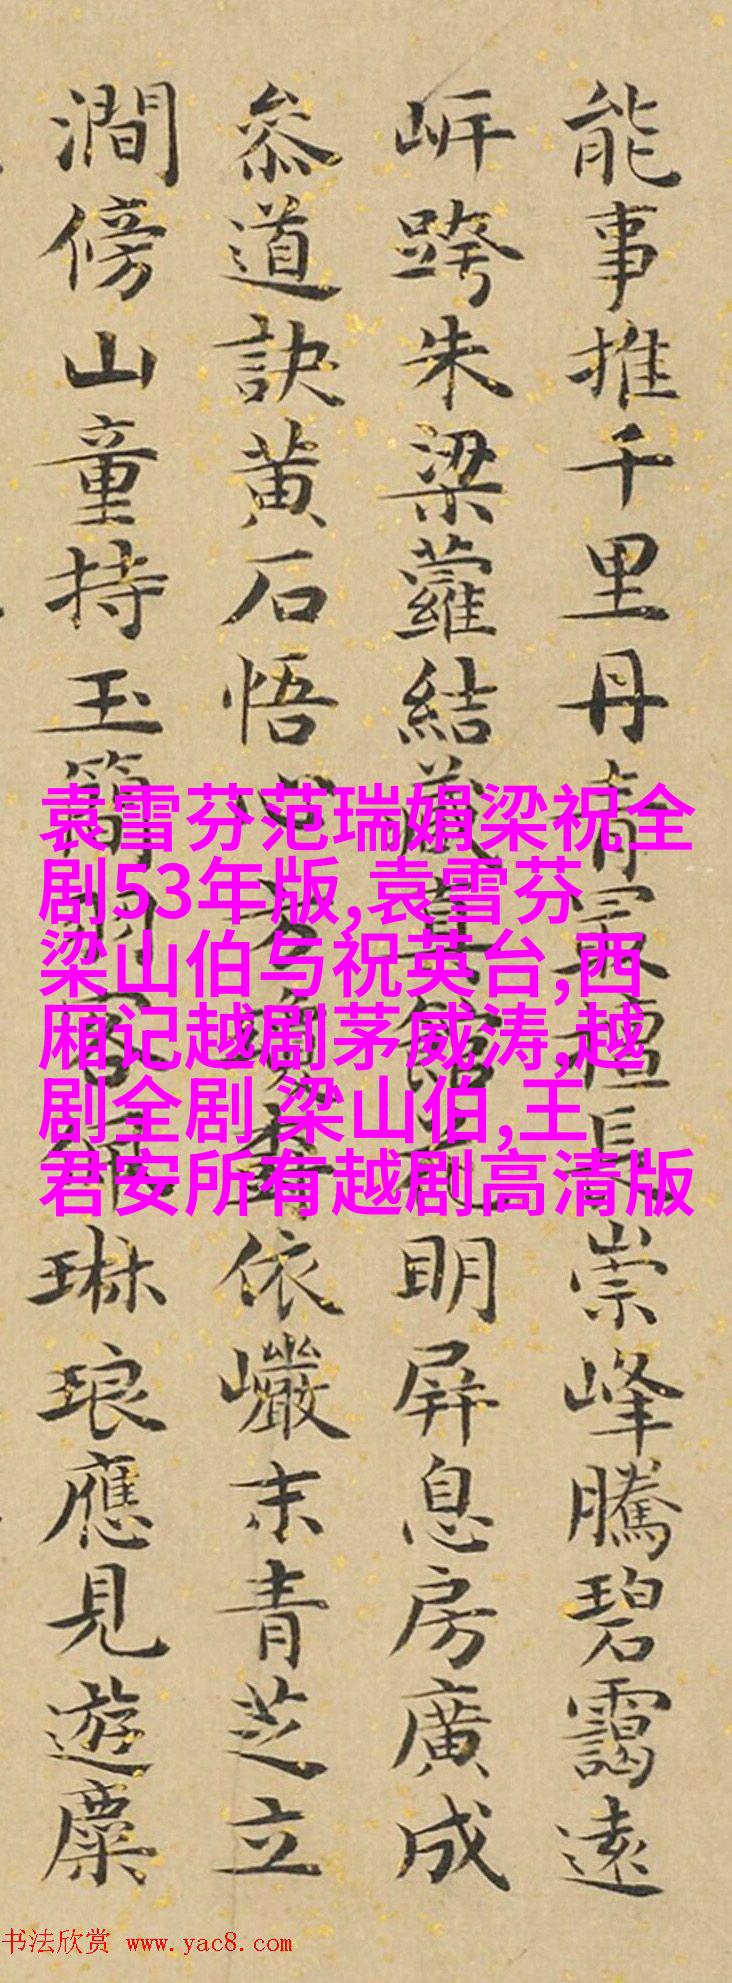 能事推千里丹青最擅長崇峰騰碧靄遠
岍跨朱梁蘿結藏真館花明屏息房廣成
叅道訣黄石悟心依巖末青芝立
澗傍山童持玉簡羽客佩琳琅應見遊麋
袁雪芬范瑞娟梁祝全
剧53年版,袁雪芬
梁山伯与祝英台,西
厢记越剧茅威涛,越
剧全剧 梁山伯,王
君安所有越剧高清版
书法欣赏 www.yac8.com